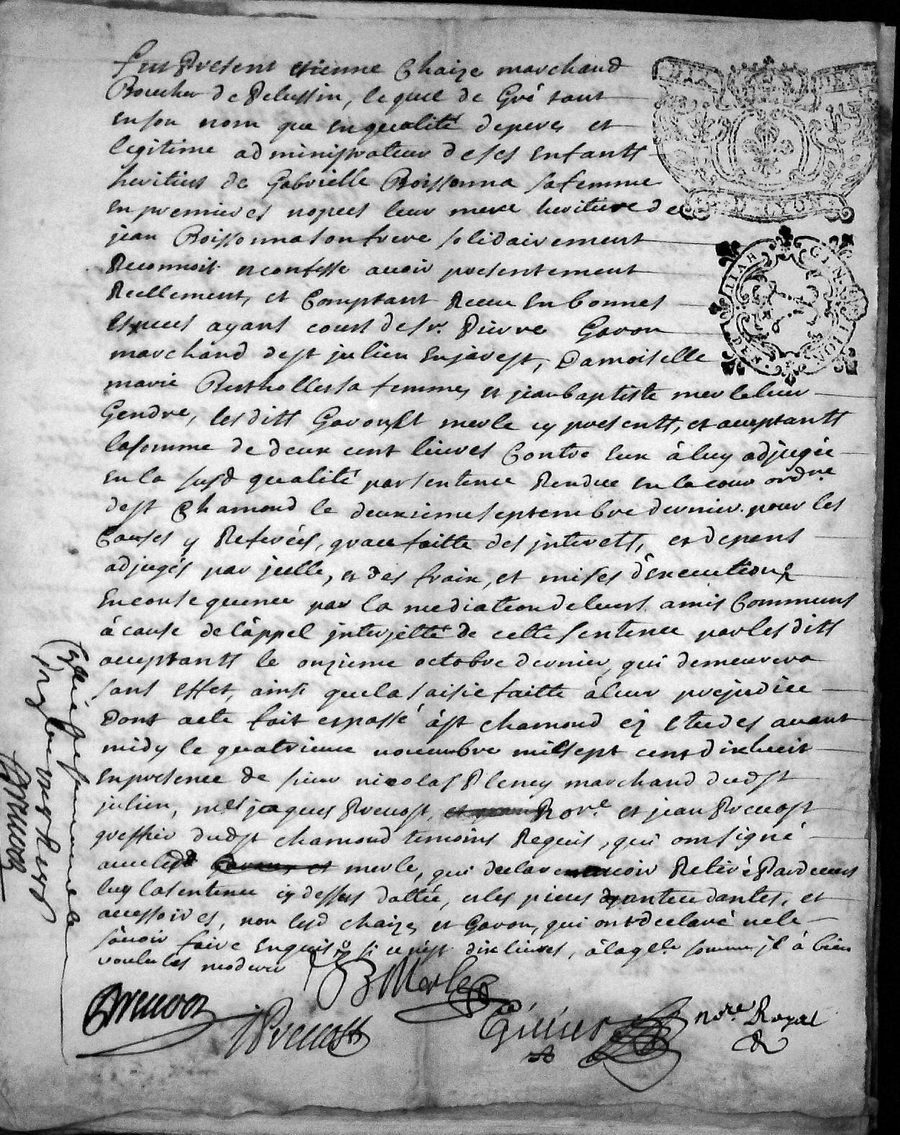 fut Present etienne Chaize marchand
Boucher de Pelussin, lequel de Gré tant
en son nom que en qualité de pere, et
legitime administrateur de ses enfantt
heritiers de Gabrielle Boissonna sa femme
en premieres nopces leur mere heritiere de
jean Boissonna son frere solidairement
Reconnoit et confesse avoir presentement
Reellement, et Comptant Receu en bonnes
especes ayant cours de sr. Pierre Gavon
marchand de st julien en jarest, Damoiselle
marie Bertholles sa femme, et jean baptiste merle leur
Gendre, les ditt Gavon, et merle cy presentt, et acceptantt
la somme de deux cent livres Contre eux à luy adjugée
en la susd qualité par sentence Rendue en la cour ordre
de st Chamond le deuxieme septembre dernier pour les
Causes y Referées, grace faitte des interett, et depens
adjugés par jcelle, et des fraix, et mises d'execution,
en consequence par la mediation de leurs amis Communs
à cause de l'appel jnterjetté de cette sentence par les ditt
acceptantt le onzieme octobre dernier, qui demeurera
sans effet, ainsi que la saisie faitte à leur prejudice
Dont acte fait et passé à st chamond ez etudes avant
midy le quatrieme novembre mil sept cent dixhuit
en presence de sieur nicolas Pleney marchand dudt st
julien, me jaques Prevost, Nore. et jean Prevost
greffier dudt st chamond temoins Requis, qui ont signé
avec led merle, qui declare avoir Retiré Pardevers
luy la sentence cy dessus dattée, et les pieces antecedantes, et
accessoires, non lesd chaize, et Gavon, qui ont declaré ne le
sçavoir faire enquis si ce n'est dix livres, à laqle. somme jl à bien
voulu les moderer
JB Merle
Prevost
JPrevost
nore. Royal
LYON